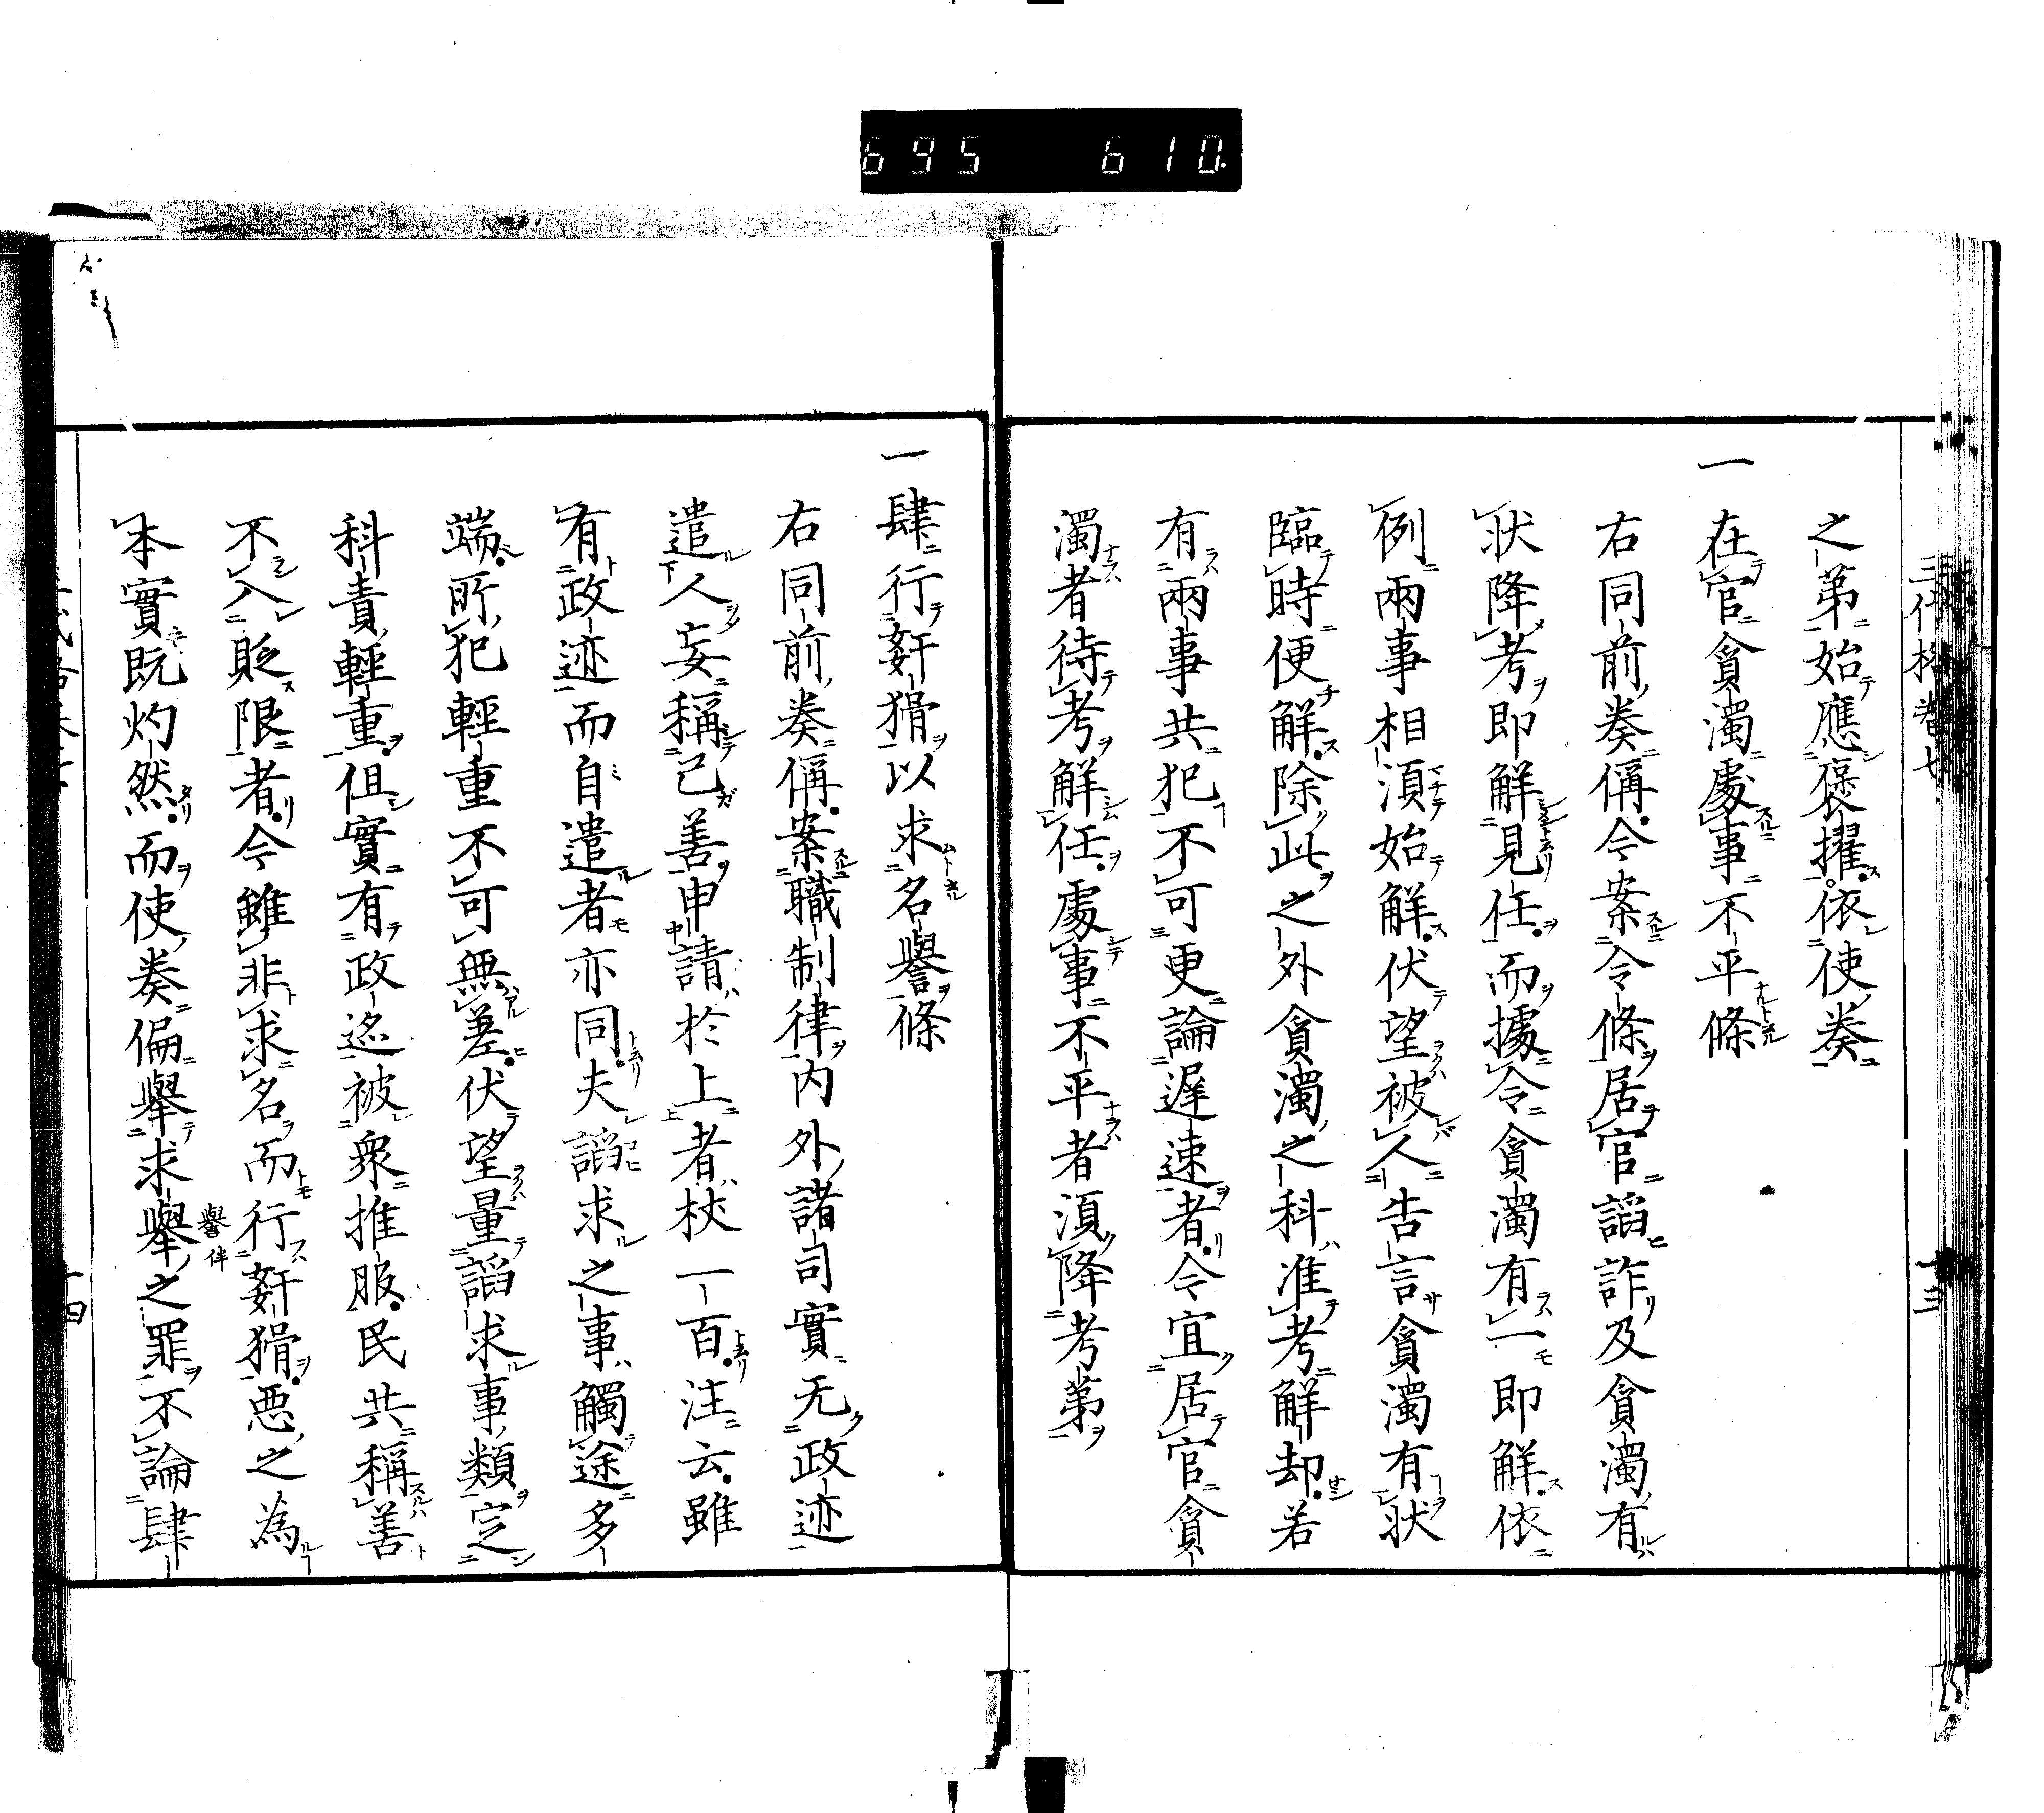 695 610
三代格巻七
十三
之第始應褒擢依使奏
一在官貪濁處事不平條
右同前奏偁今案令條居官謟詐及貪濁有
狀降考即解見任而據令貪濁有一即解依
例兩事相須始解伏望被人告言貪濁有狀
臨時便解除此之外貪濁之科准考解却若
有兩事共犯不可更論遲速者今宜居官貪
濁者待考解任處事不平者須降考第
一肆行姧猾以求名譽條
右同前奏偁案職制律内外諸司實无政迹
遣人妄稱己善申請於上者杖一百注云雖
有政迹而自遣者亦同夫謟求之事觸途多
端所犯輕重不可無差伏望量謟求事類定
科責輕重但實有政迹被衆推服民共稱善
不入貶限者今雖非求名而行姧猾悪之為
本實既灼然而使奏偏擧求擧之罪不論肆
譽イ本
十四